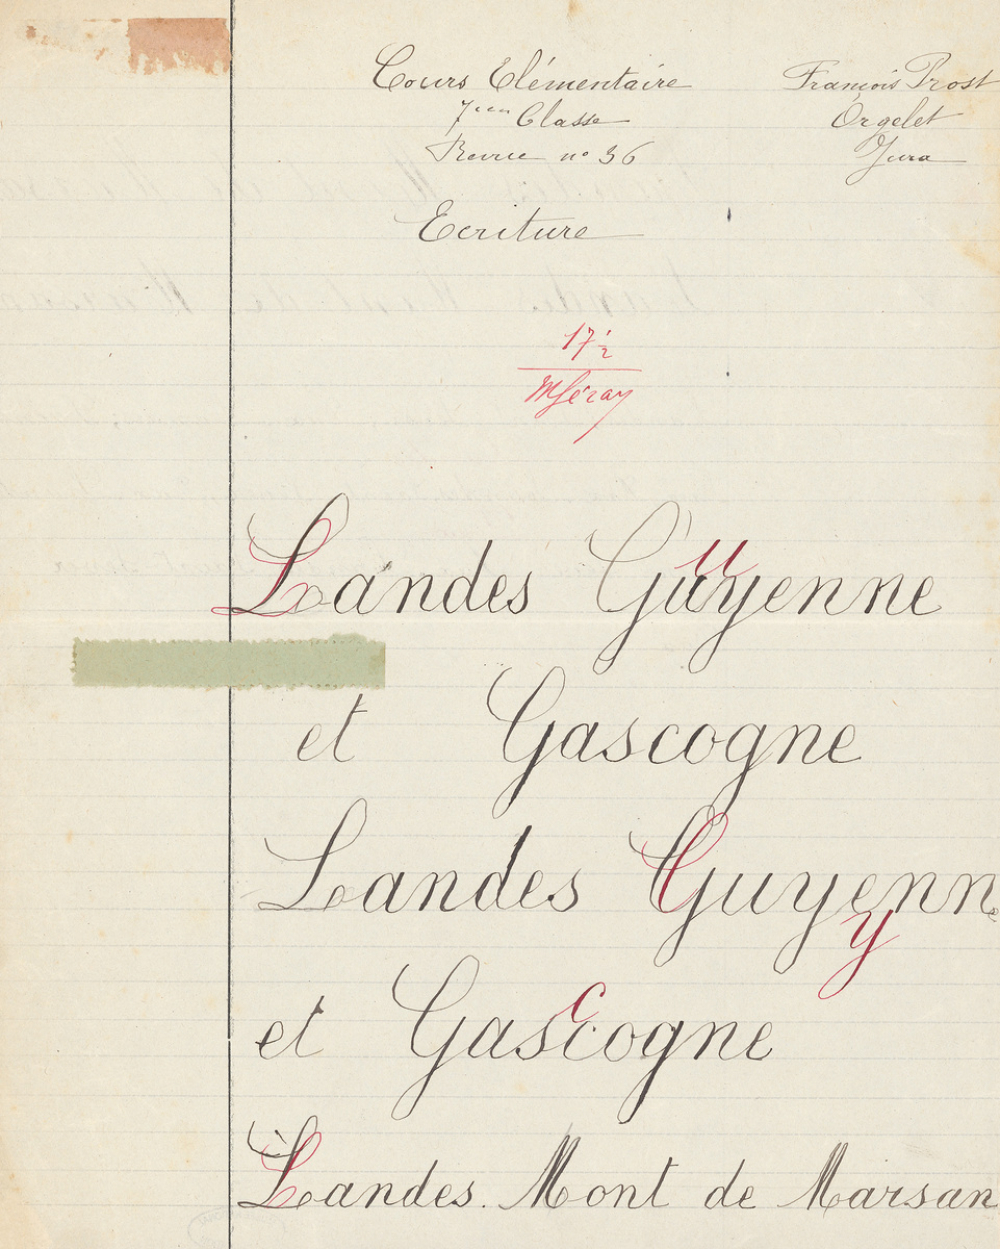 Cours Elémentaire
François Prost
7ème Classe
Orgelet
Revue nº 36
Jura
Ecriture
17 1/2
Landes Guyenne
u
et Gascogne
Landes Guyenne
y
et Gascogne
c
Landes. Mont de Marsan